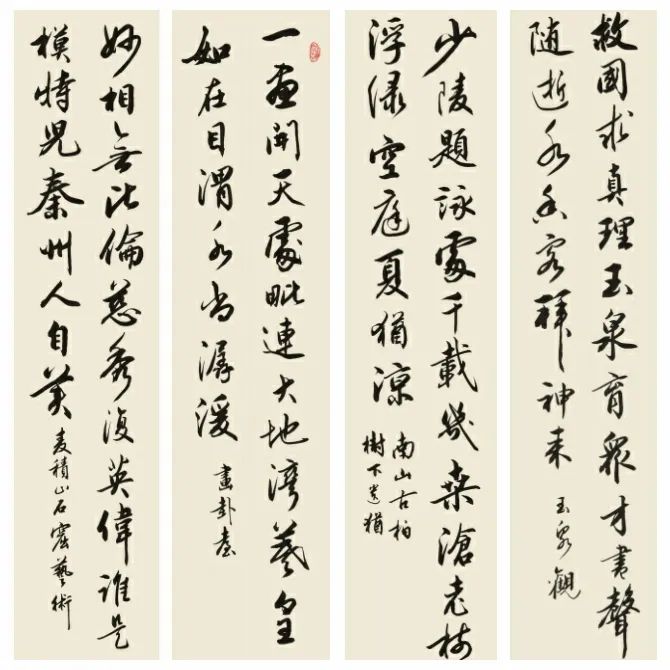 救國求真理玉泉育眾才書聲
随逝水香客拜神来
玉泉觀
少陵題詠處千載幾桑滄老樹
浮绿空庭夏猶涼
南山古柏
樹下遺猶
一畫開天處毗連大地湾羲皇
如在目渭水尚潺湲
畫卦臺
妙相無比倫慈秀復英偉誰是
模特兒秦州人自美
麦積山石窟藝術